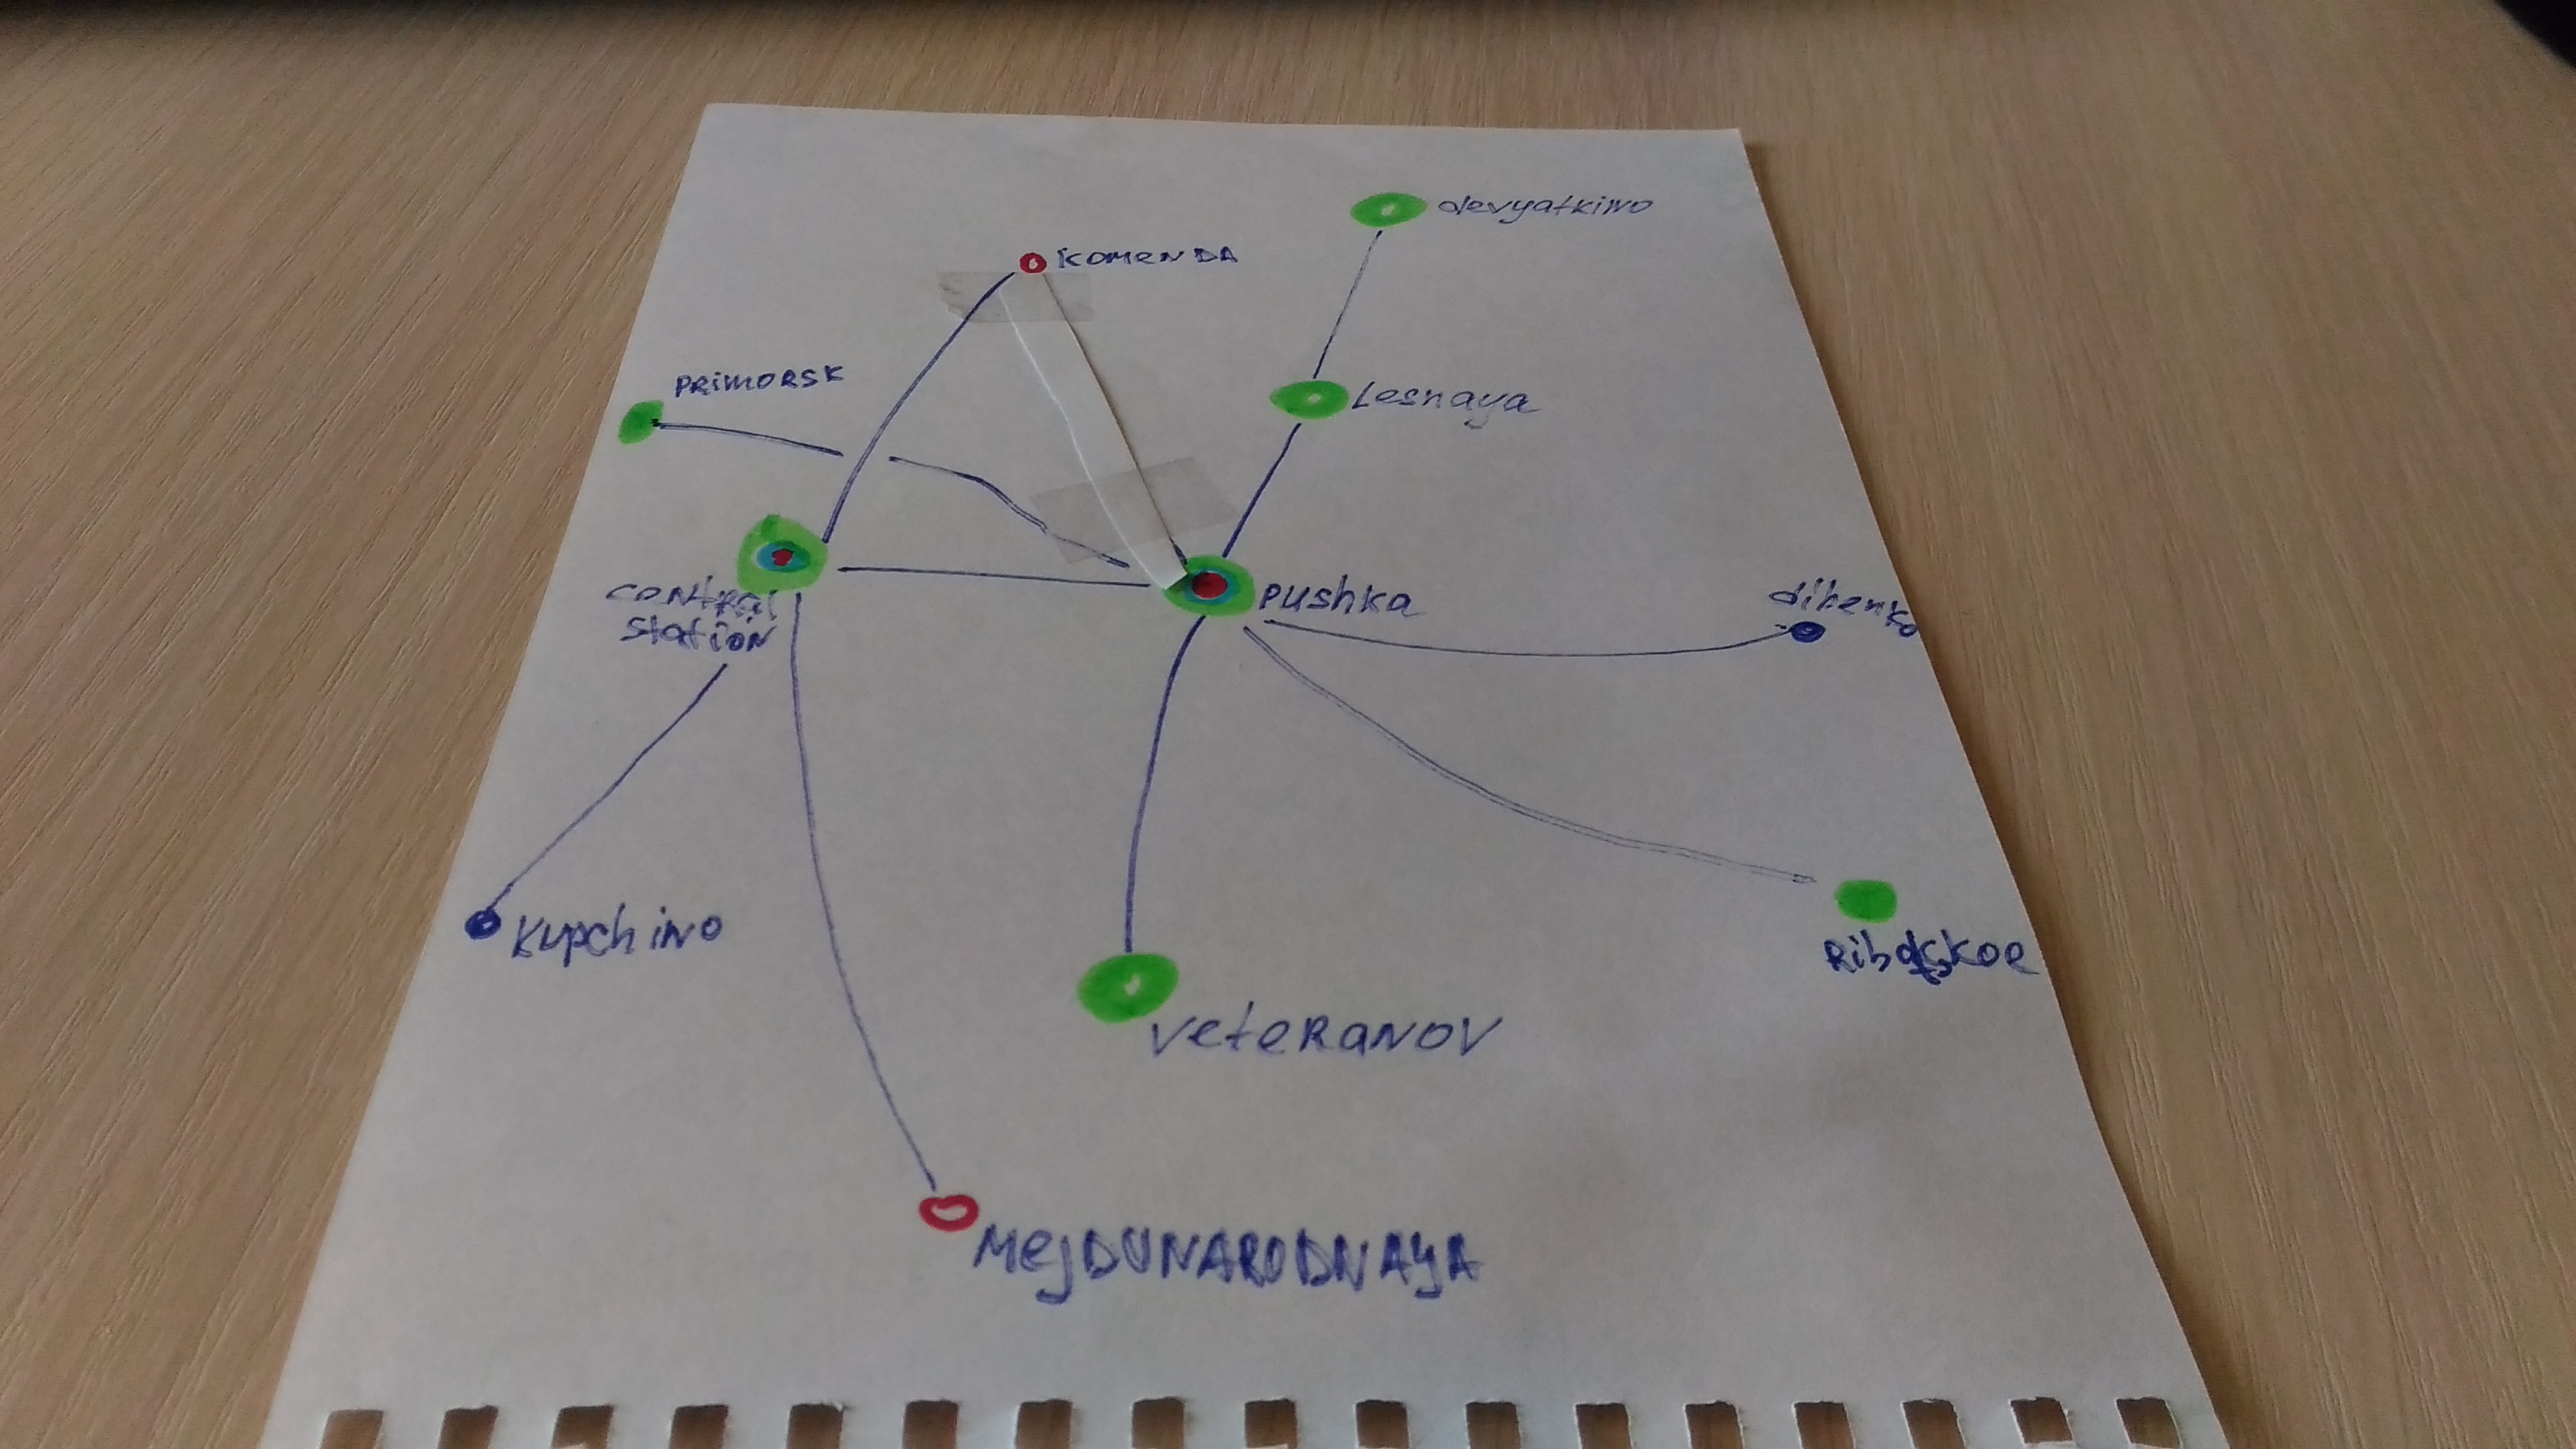 devyatkino
KOMENDA
PRIMORSK
Lesnaya
central
station
pushka
dibenko
Kupchino
Ribatskoe
veteRanov
MejDUNARODNAYA